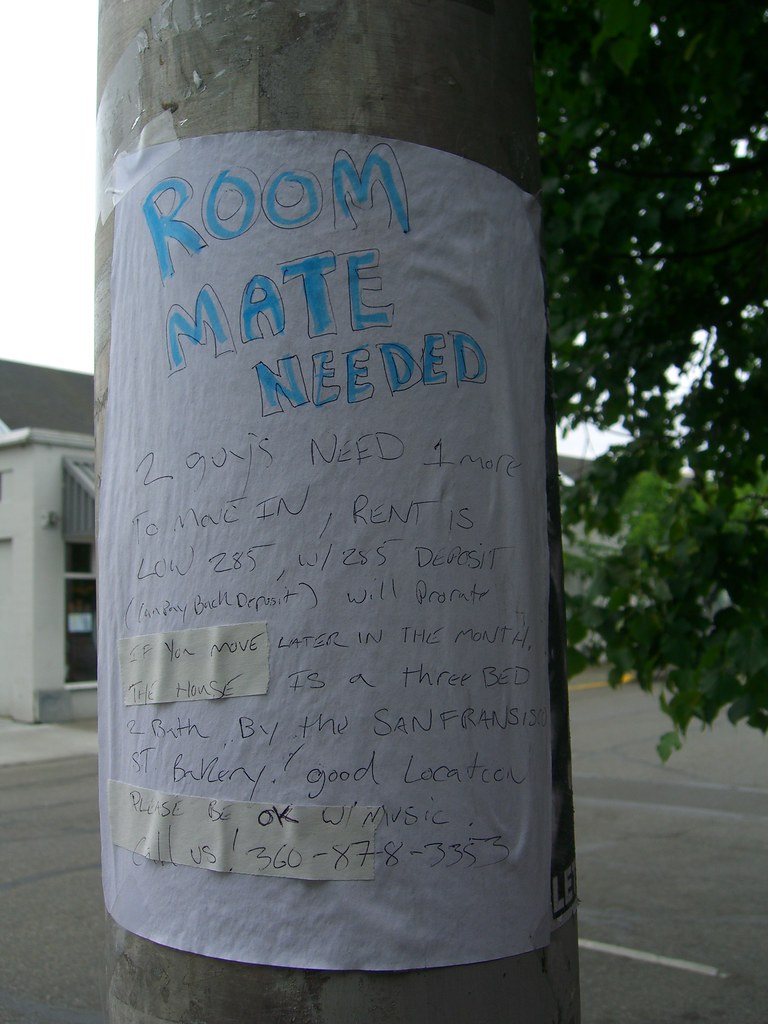 ROOM
MATE
NEEDED
2 guys NEED 1 more
To MOVE IN, RENT IS
LOW 285, w/ 285 DEPOSIT
(can pay Back Deposit) will Prorate
IF You MOVE LATER IN THE MONTH.
THE House IS a three BED
2 Bath By the SAN FRANSISCO
ST. Bakery! good Location
PLEASE BE OK W/ MUSIC.
Call us! 360-878-3353
LE